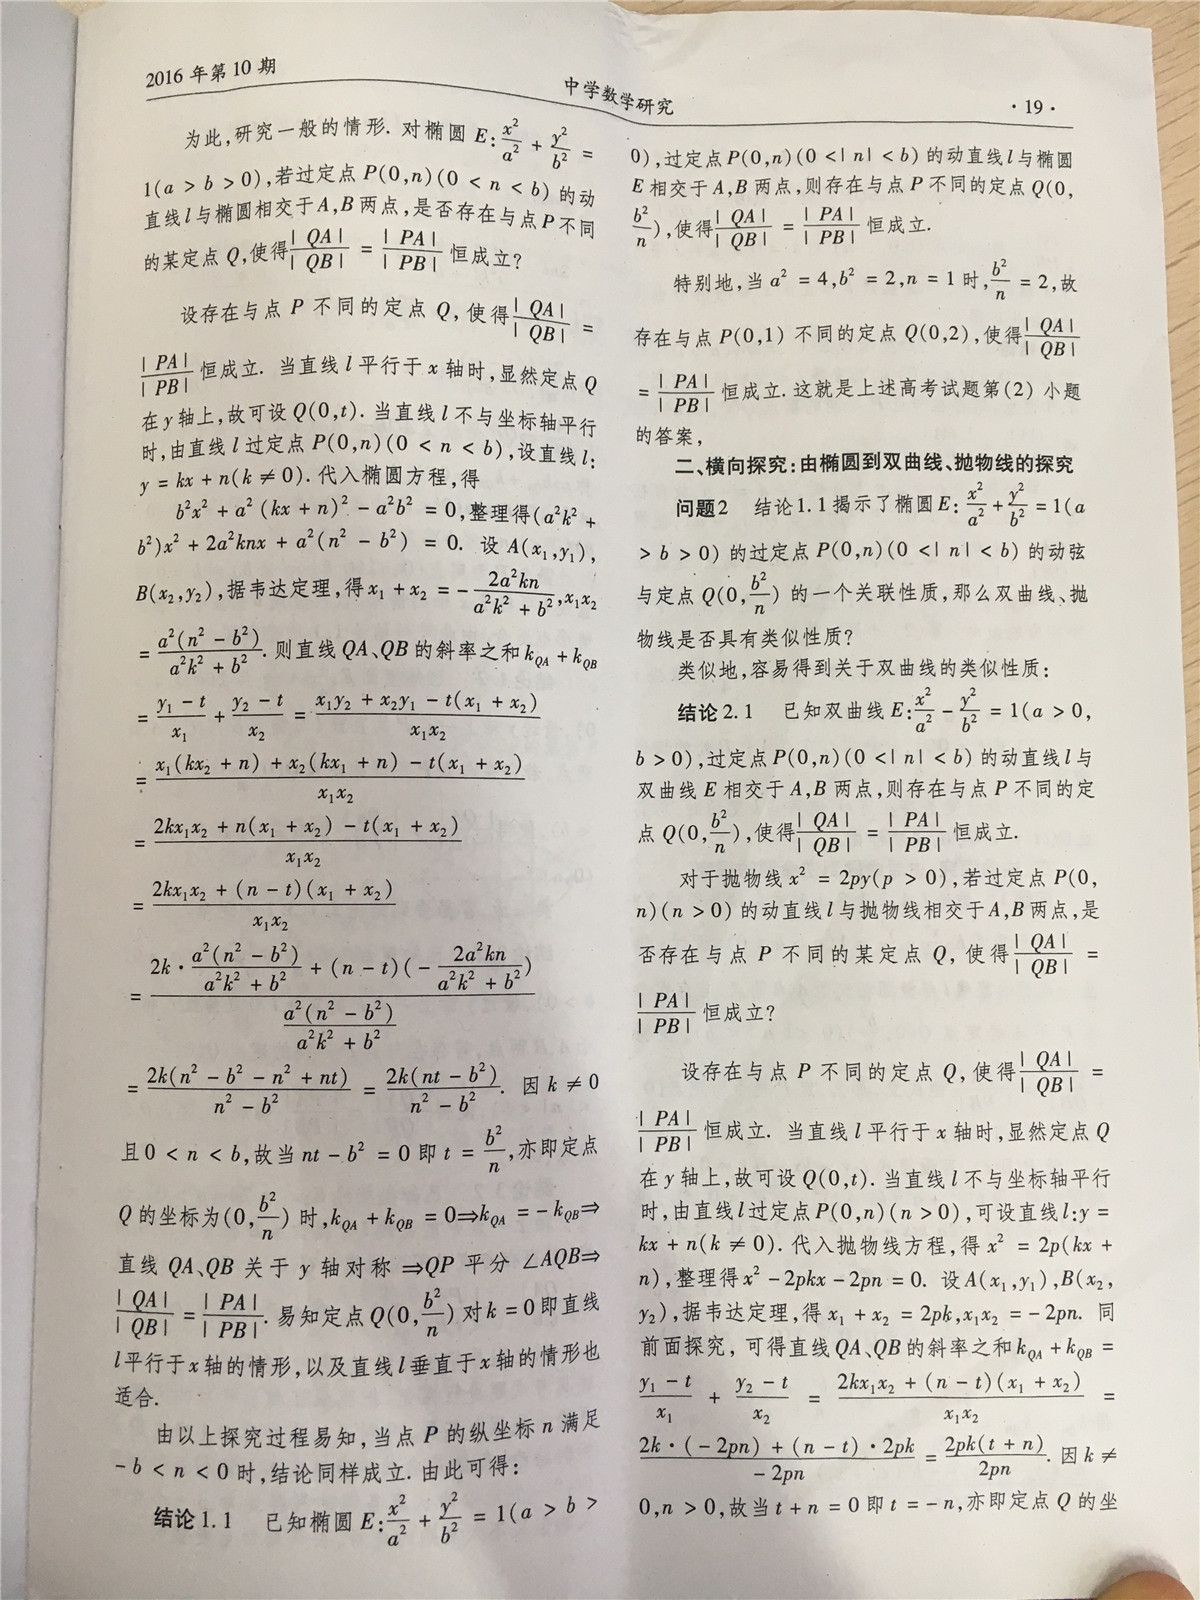 2016 年第 10 期
中学数学研究
· 19 ·
为此,研究一般的情形. 对椭圆 E: x²/a² + y²/b² =
1(a > b > 0),若过定点 P(0,n)(0 < n < b) 的动
直线 l 与椭圆相交于 A,B 两点,是否存在与点 P 不同
的某定点 Q,使得 |QA|/|QB| = |PA|/|PB| 恒成立?
设存在与点 P 不同的定点 Q, 使得 |QA|/|QB| =
|PA|/|PB| 恒成立. 当直线 l 平行于 x 轴时,显然定点 Q
在 y 轴上,故可设 Q(0,t). 当直线 l 不与坐标轴平行
时,由直线 l 过定点 P(0,n)(0 < n < b),设直线 l:
y = kx + n(k ≠ 0). 代入椭圆方程,得
b²x² + a²(kx + n)² - a²b² = 0,整理得(a²k² +
b²)x² + 2a²knx + a²(n² - b²) = 0. 设 A(x₁,y₁),
B(x₂,y₂),据韦达定理,得 x₁ + x₂ = - 2a²kn/(a²k² + b²),x₁x₂
= a²(n² - b²)/(a²k² + b²). 则直线 QA、QB 的斜率之和 k_QA + k_QB
= (y₁ - t)/x₁ + (y₂ - t)/x₂ = (x₁y₂ + x₂y₁ - t(x₁ + x₂))/(x₁x₂)
= (x₁(kx₂ + n) + x₂(kx₁ + n) - t(x₁ + x₂))/(x₁x₂)
= (2kx₁x₂ + n(x₁ + x₂) - t(x₁ + x₂))/(x₁x₂)
= (2kx₁x₂ + (n - t)(x₁ + x₂))/(x₁x₂)
= (2k · a²(n² - b²)/(a²k² + b²) + (n - t)(- 2a²kn/(a²k² + b²)))/(a²(n² - b²)/(a²k² + b²))
= 2k(n² - b² - n² + nt)/(n² - b²) = 2k(nt - b²)/(n² - b²). 因 k ≠ 0
且 0 < n < b,故当 nt - b² = 0 即 t = b²/n,亦即定点
Q 的坐标为(0, b²/n) 时,k_QA + k_QB = 0⇒k_QA = - k_QB⇒
直线 QA、QB 关于 y 轴对称 ⇒QP 平分 ∠AQB⇒
|QA|/|QB| = |PA|/|PB|. 易知定点 Q(0, b²/n) 对 k = 0 即直线
l 平行于 x 轴的情形,以及直线 l 垂直于 x 轴的情形也
适合.
由以上探究过程易知,当点 P 的纵坐标 n 满足
- b < n < 0 时,结论同样成立. 由此可得:
结论 1.1 已知椭圆 E: x²/a² + y²/b² = 1(a > b >
0),过定点 P(0,n)(0 <| n| < b) 的动直线 l 与椭圆
E 相交于 A,B 两点,则存在与点 P 不同的定点 Q(0,
b²/n),使得 |QA|/|QB| = |PA|/|PB| 恒成立.
特别地,当 a² = 4,b² = 2,n = 1 时, b²/n = 2,故
存在与点 P(0,1) 不同的定点 Q(0,2),使得 |QA|/|QB|
= |PA|/|PB| 恒成立. 这就是上述高考试题第(2) 小题
的答案,
二、横向探究:由椭圆到双曲线、抛物线的探究
问题2 结论1.1 揭示了椭圆 E: x²/a² + y²/b² = 1(a
> b > 0) 的过定点 P(0,n)(0 <| n| < b) 的动弦
与定点 Q(0, b²/n) 的一个关联性质,那么双曲线、抛
物线是否具有类似性质?
类似地,容易得到关于双曲线的类似性质:
结论 2.1 已知双曲线 E: x²/a² - y²/b² = 1(a > 0,
b > 0),过定点 P(0,n)(0 <| n| < b) 的动直线 l 与
双曲线 E 相交于 A,B 两点,则存在与点 P 不同的定
点 Q(0, b²/n),使得 |QA|/|QB| = |PA|/|PB| 恒成立.
对于抛物线 x² = 2py(p > 0),若过定点 P(0,
n)(n > 0) 的动直线 l 与抛物线相交于 A,B 两点,是
否存在与点 P 不同的某定点 Q, 使得 |QA|/|QB| =
|PA|/|PB| 恒成立?
设存在与点 P 不同的定点 Q,使得 |QA|/|QB| =
|PA|/|PB| 恒成立. 当直线 l 平行于 x 轴时,显然定点 Q
在 y 轴上,故可设 Q(0,t). 当直线 l 不与坐标轴平行
时,由直线 l 过定点 P(0,n)(n > 0),可设直线 l:y =
kx + n(k ≠ 0). 代入抛物线方程,得 x² = 2p(kx +
n),整理得 x² - 2pkx - 2pn = 0. 设 A(x₁,y₁),B(x₂,
y₂),据韦达定理,得 x₁ + x₂ = 2pk,x₁x₂ = - 2pn. 同
前面探究, 可得直线 QA、QB 的斜率之和 k_QA + k_QB =
(y₁ - t)/x₁ + (y₂ - t)/x₂ = (2kx₁x₂ + (n - t)(x₁ + x₂))/(x₁x₂) =
(2k · (- 2pn) + (n - t) · 2pk)/(- 2pn) = 2pk(t + n)/(2pn). 因 k ≠
0,n > 0,故当 t + n = 0 即 t = - n,亦即定点 Q 的坐